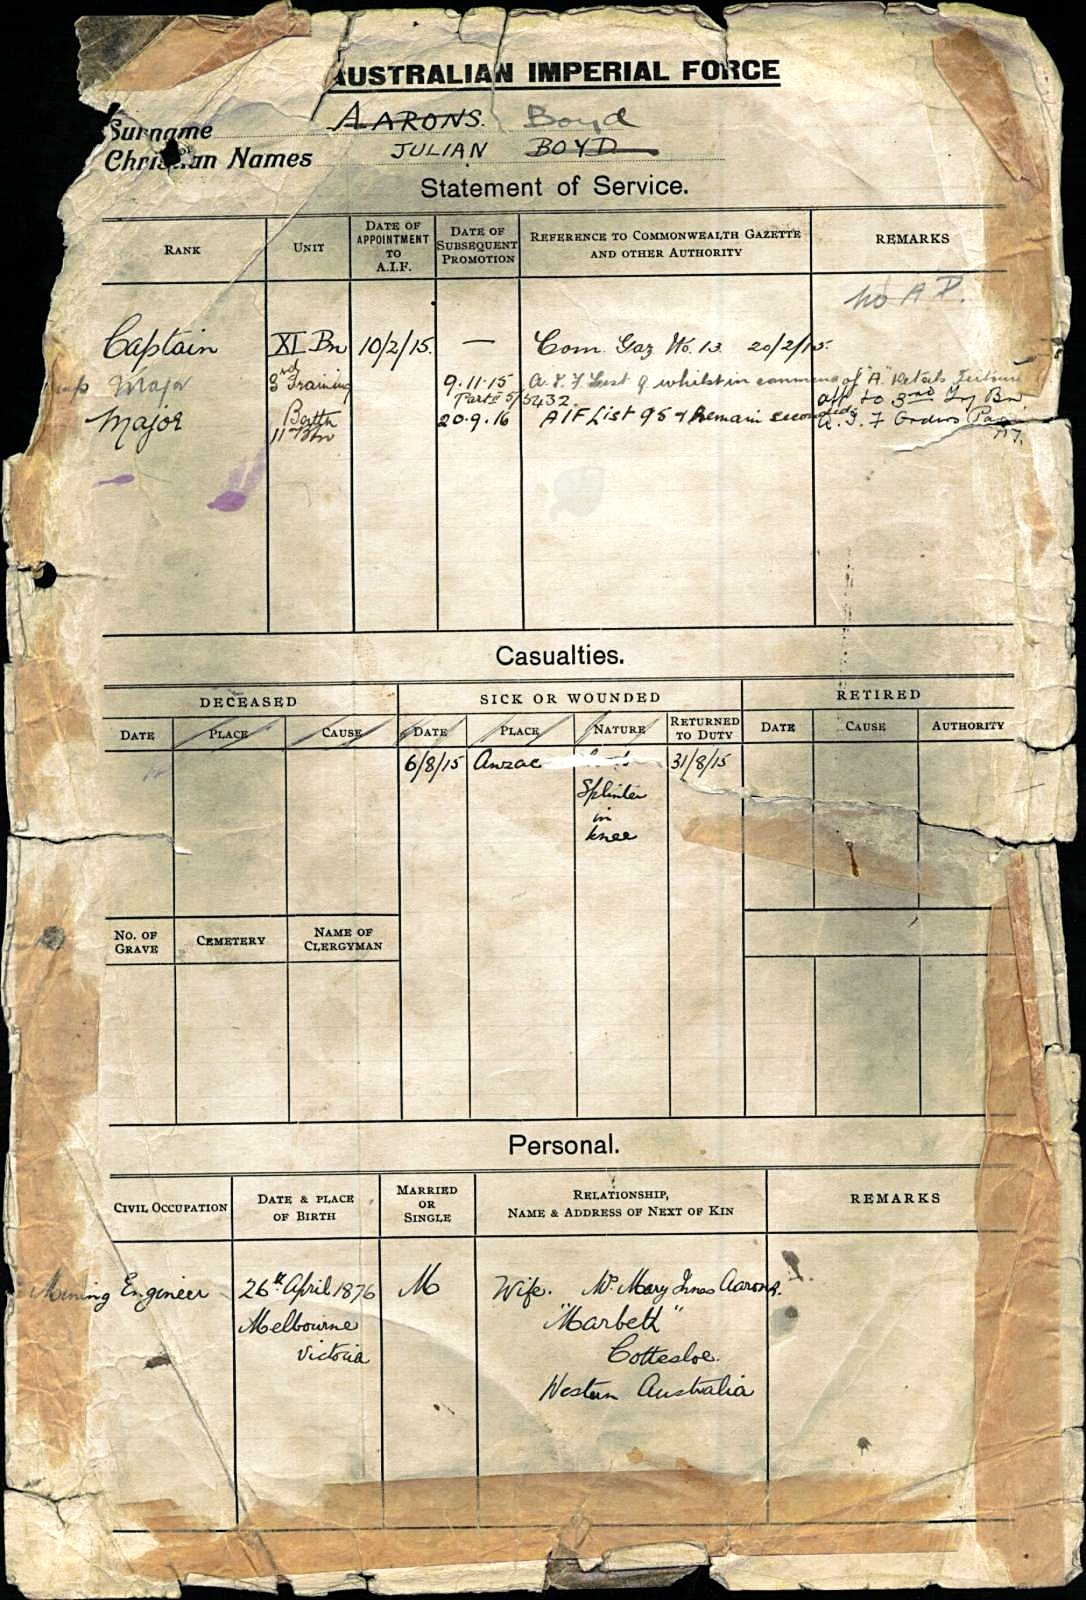 AUSTRALIAN IMPERIAL FORCE
Surname AARONS. Boyd
Christian Names JULIAN BOYD
Statement of Service.
RANK
UNIT
DATE OF APPOINTMENT TO A.I.F.
DATE OF SUBSEQUENT PROMOTION
REFERENCE TO COMMONWEALTH GAZETTE AND OTHER AUTHORITY
REMARKS
No A P.
Captain XI Bn 10/2/15. — Com. Gaz No. 13. 20/2/15.
Major 3rd Training 9.11.15 A.I.F List 9 whilst in command of "A" Details
Battn Parte 5/5432 att to 3rd Bn
Major 11th Bn 20.9.16 AIF List 95 Remain seconded A.I.F Orders
Casualties.
DECEASED
SICK OR WOUNDED
RETIRED
DATE
PLACE
CAUSE
DATE
PLACE
NATURE
RETURNED TO DUTY
DATE
CAUSE
AUTHORITY
6/8/15 Anzac 31/8/15
Splinter
in
knee
NO. OF GRAVE
CEMETERY
NAME OF CLERGYMAN
Personal.
CIVIL OCCUPATION
DATE & PLACE OF BIRTH
MARRIED OR SINGLE
RELATIONSHIP, NAME & ADDRESS OF NEXT OF KIN
REMARKS
Mining Engineer 26th April 1876 M Wife. Mrs Mary Innes Aarons.
Melbourne "Marbett"
Victoria Cottesloe.
Western Australia